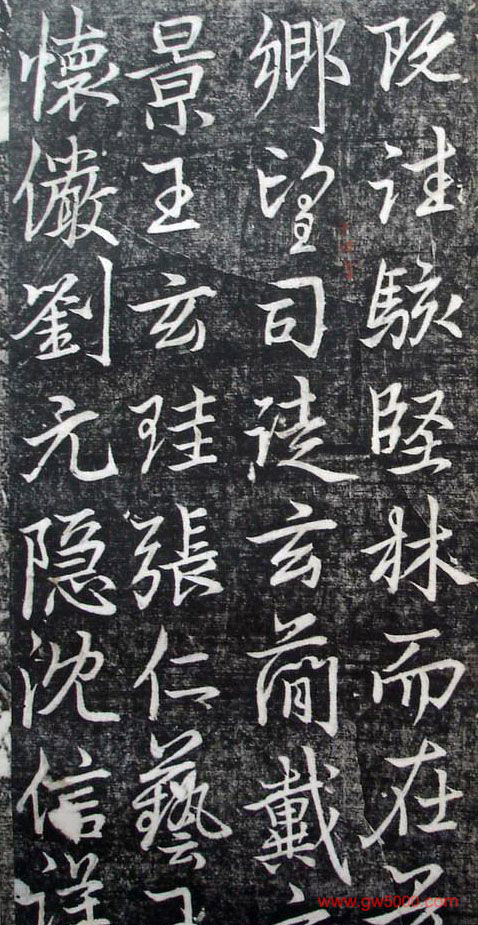 既往駭堅林而在
鄉望司徒玄簡戴
景王玄珪張仁藝王
懷儼劉元隱沈信詳
www.gw5000.com